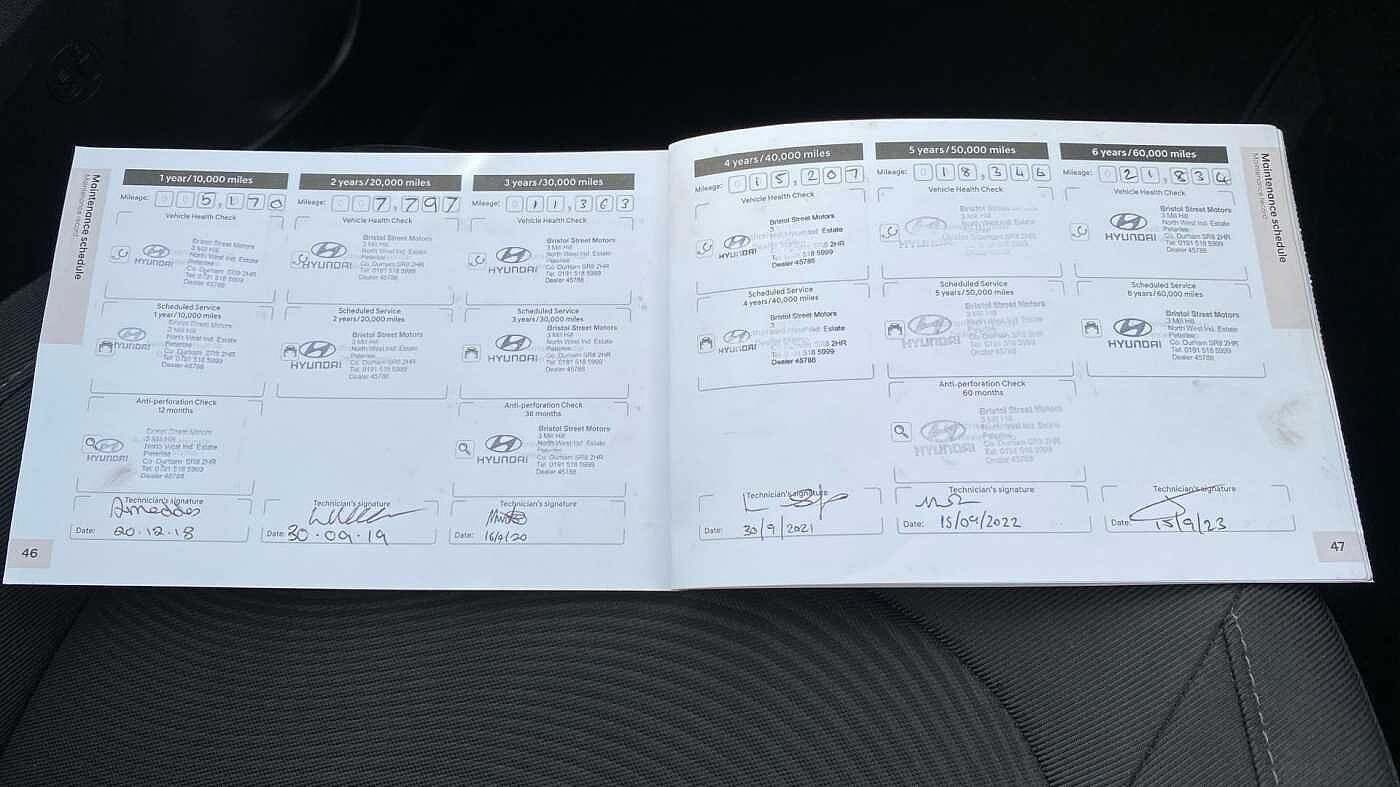 Maintenance schedule
Maintenance record
1 year/10,000 miles
Mileage: 005,170
Vehicle Health Check
HYUNDAI
Bristol Street Motors
3 Mill Hill
North West Ind. Estate
Peterlee
Co. Durham SR8 2HR
Tel: 0191 518 5999
Dealer 45788
Scheduled Service
1 year/10,000 miles
HYUNDAI
Bristol Street Motors
3 Mill Hill
North West Ind. Estate
Peterlee
Co. Durham SR8 2HR
Tel: 0191 518 5999
Dealer 45788
Anti-perforation Check
12 months
HYUNDAI
Bristol Street Motors
3 Mill Hill
North West Ind. Estate
Peterlee
Co. Durham SR8 2HR
Tel: 0191 518 5999
Dealer 45788
Technician's signature
Date: 20.12.18
46
2 years/20,000 miles
Mileage: 007,797
Vehicle Health Check
HYUNDAI
Bristol Street Motors
3 Mill Hill
North West Ind. Estate
Peterlee
Co. Durham SR8 2HR
Tel: 0191 518 5999
Dealer 45788
Scheduled Service
2 years/20,000 miles
HYUNDAI
Bristol Street Motors
3 Mill Hill
North West Ind. Estate
Peterlee
Co. Durham SR8 2HR
Tel: 0191 518 5999
Dealer 45788
Technician's signature
Date: 30.09.19
3 years/30,000 miles
Mileage: 011,363
Vehicle Health Check
HYUNDAI
Bristol Street Motors
3 Mill Hill
North West Ind. Estate
Peterlee
Co. Durham SR8 2HR
Tel: 0191 518 5999
Dealer 45788
Scheduled Service
3 years/30,000 miles
HYUNDAI
Bristol Street Motors
3 Mill Hill
North West Ind. Estate
Peterlee
Co. Durham SR8 2HR
Tel: 0191 518 5999
Dealer 45788
Anti-perforation Check
36 months
HYUNDAI
Bristol Street Motors
3 Mill Hill
North West Ind. Estate
Peterlee
Co. Durham SR8 2HR
Tel: 0191 518 5999
Dealer 45788
Technician's signature
Date: 16/9/20
4 years/40,000 miles
Mileage: 015,207
Vehicle Health Check
HYUNDAI
Bristol Street Motors
3
Estate
2HR
5999
Dealer 45788
Scheduled Service
4 years/40,000 miles
HYUNDAI
Bristol Street Motors
3
Estate
2HR
518 5999
Dealer 45788
Technician's signature
Date: 30/9/2021
5 years/50,000 miles
Mileage: 018,346
Vehicle Health Check
Bristol Street
3 Mill Hill
North West Ind. Estate
Peterlee
Co. Durham SR8 2HR
Tel: 0191 518 5999
Dealer 45788
Scheduled Service
5 years/50,000 miles
HYUNDAI
Bristol Street Motors
3 Mill Hill
North West Ind. Estate
Peterlee
Co. Durham SR8 2HR
Tel: 0191 518 5999
Dealer 45788
Anti-perforation Check
60 months
HYUNDAI
Bristol Street Motors
3 Mill Hill
North West Ind. Estate
Peterlee
Co. Durham SR8 2HR
Tel: 0191 518 5999
Dealer 45788
Technician's signature
Date: 15/09/2022
6 years/60,000 miles
Mileage: 021,834
Vehicle Health Check
HYUNDAI
Bristol Street Motors
3 Mill Hill
North West Ind. Estate
Peterlee
Co. Durham SR8 2HR
Tel: 0191 518 5999
Dealer 45788
Scheduled Service
6 years/60,000 miles
HYUNDAI
Bristol Street Motors
3 Mill Hill
North West Ind. Estate
Peterlee
Co. Durham SR8 2HR
Tel: 0191 518 5999
Dealer 45788
Technician's signature
Date: 15/9/23
Maintenance schedule
Maintenance record
47